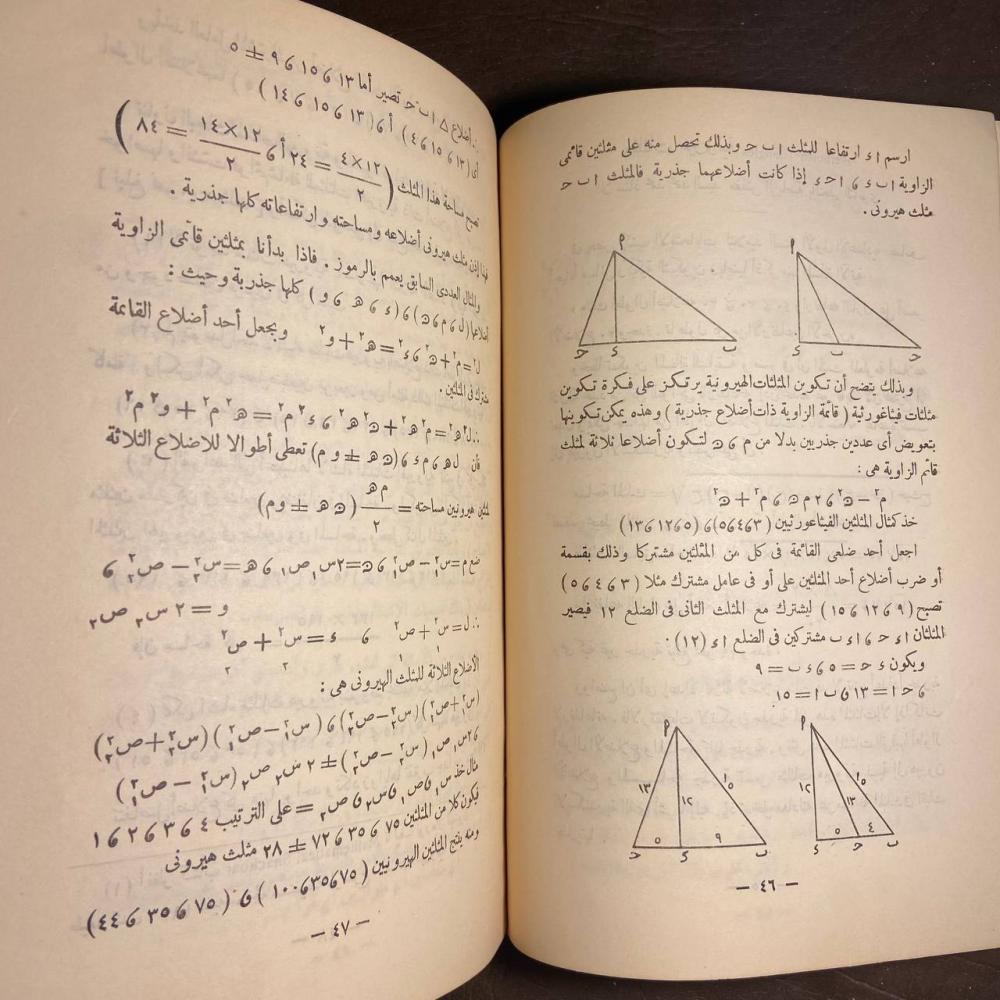 ارسم ا ء ارتفاعا للمثلث ا ب ح وبذلك تحصل منه على مثلثين قائمى
الزاوية ا ب ء ، ا ح ء إذا كانت أضلاعهما جذرية فالمثلث ا ب ح
مثلث هيرونى .
م
م
ح
ء
ب
ء
ب
ح
وبذلك يتضح أن تكوين المثلثات الهيرونية يرتكز على فكرة تكوين
مثلثات فيثاغورثية ( قائمة الزاوية ذات أضلاع جذرية ) وهذه يمكن تكوينها
بتعويض أى عددين جذريين بدلا من م ، ه لتكون أضلاعا ثلاثة لمثلث
قائم الزاوية هى :
م٢ − ه٢ ، ٢ م ه ، م٢ + ه٢
خذ كمثال المثلثين الفيثاغورثيين ( ٣ ، ٤ ، ٥ ) ، ( ٥ ، ١٢ ، ١٣ )
اجعل أحد ضلعى القائمة فى كل من المثلثين مشتركا وذلك بقسمة
أو ضرب أضلاع أحد المثلثين على أو فى عامل مشترك مثلا ( ٣ ، ٤ ، ٥ )
تصبح ( ٩ ، ١٢ ، ١٥ ) ليشترك مع المثلث الثانى فى الضلع ١٢ فيصير
المثلثان ا ء ح ، ا ء ب مشتركين فى الضلع ا ء (١٢) .
ويكون ء ح = ٥ ، ء ب = ٩
، ح ا = ١٣ ، ب ا = ١٥
م
م
١٣
١٢
١٥
١٢
١٣
١٥
٥
٩
٥
٤
ح
ء
ب
ء
ح
ب
— ٤٦ —
∴ أضلاع △ ا ب ح تصير أما ١٣ ، ١٥ ، ٩ ± ٥
أى ( ١٣ ، ١٥ ، ٤ ) أ، ( ١٣ ، ١٥ ، ١٤ )
تصبح مساحة هذا المثلث ( ١٢×٤ / ٢ = ٢٤ أ، ١٢×١٤ / ٢ = ٨٤ )
فهذا إذن مثلث هيرونى أضلاعه ومساحته وارتفاعاته كلها جذرية .
والمثال العددى السابق يعمم بالرموز . فاذا بدأنا بمثلثين قائمى الزاوية
أضلاعها ( ل ، م ، ه ) ، ( ء ، ھ ، و ) كلها جذرية وحيث :
ل٢ = م٢ + ه٢ ، ء٢ = ھ٢ + و٢ وبجعل أحد أضلاع القائمة
مشترك فى المثلثين .
∴ ل٢ ھ٢ = م٢ ھ٢ + ه٢ ھ٢ ، ء٢ م٢ = ھ٢ م٢ + و٢ م٢
فأن ل ھ ، م ء ، ( ه ھ ± و م ) تعطى أطوالا للاضلاع الثلاثة
لمثلثين هيرونيين مساحته = م ھ / ٢ ( ه ھ ± و م )
ضع م = س١٢ − ص١٢ ، ه = ٢ س١ ص١ ، ھ = س٢٢ − ص٢٢ ،
و = ٢ س٢ ص٢
∴ ل = س١٢ + ص١٢ ، ء = س٢٢ + ص٢٢
الاضلاع الثلاثة للمثلث الهيرونى هى :
(س١٢ + ص١٢) (س٢٢ − ص٢٢) ، (س١٢ − ص١٢) (س٢٢ + ص٢٢)
، ٢ س١ ص١ (س٢٢ − ص٢٢) ± ٢ س٢ ص٢ (س١٢ − ص١٢)
مثال خذ س١ ، ص١ ، س٢ ، ص٢ = على الترتيب ٤ ، ٣ ، ٢ ، ١
فيكون كلا من المثلثين ٧٥ ، ٣٥ ، ٧٢ ± ٢٨ مثلث هيرونى
ومنه ينتج المثلثين الهيرونيين ( ٧٥ ، ٣٥ ، ١٠٠ ) ، ( ٧٥ ، ٣٥ ، ٤٤ )
— ٤٧ —